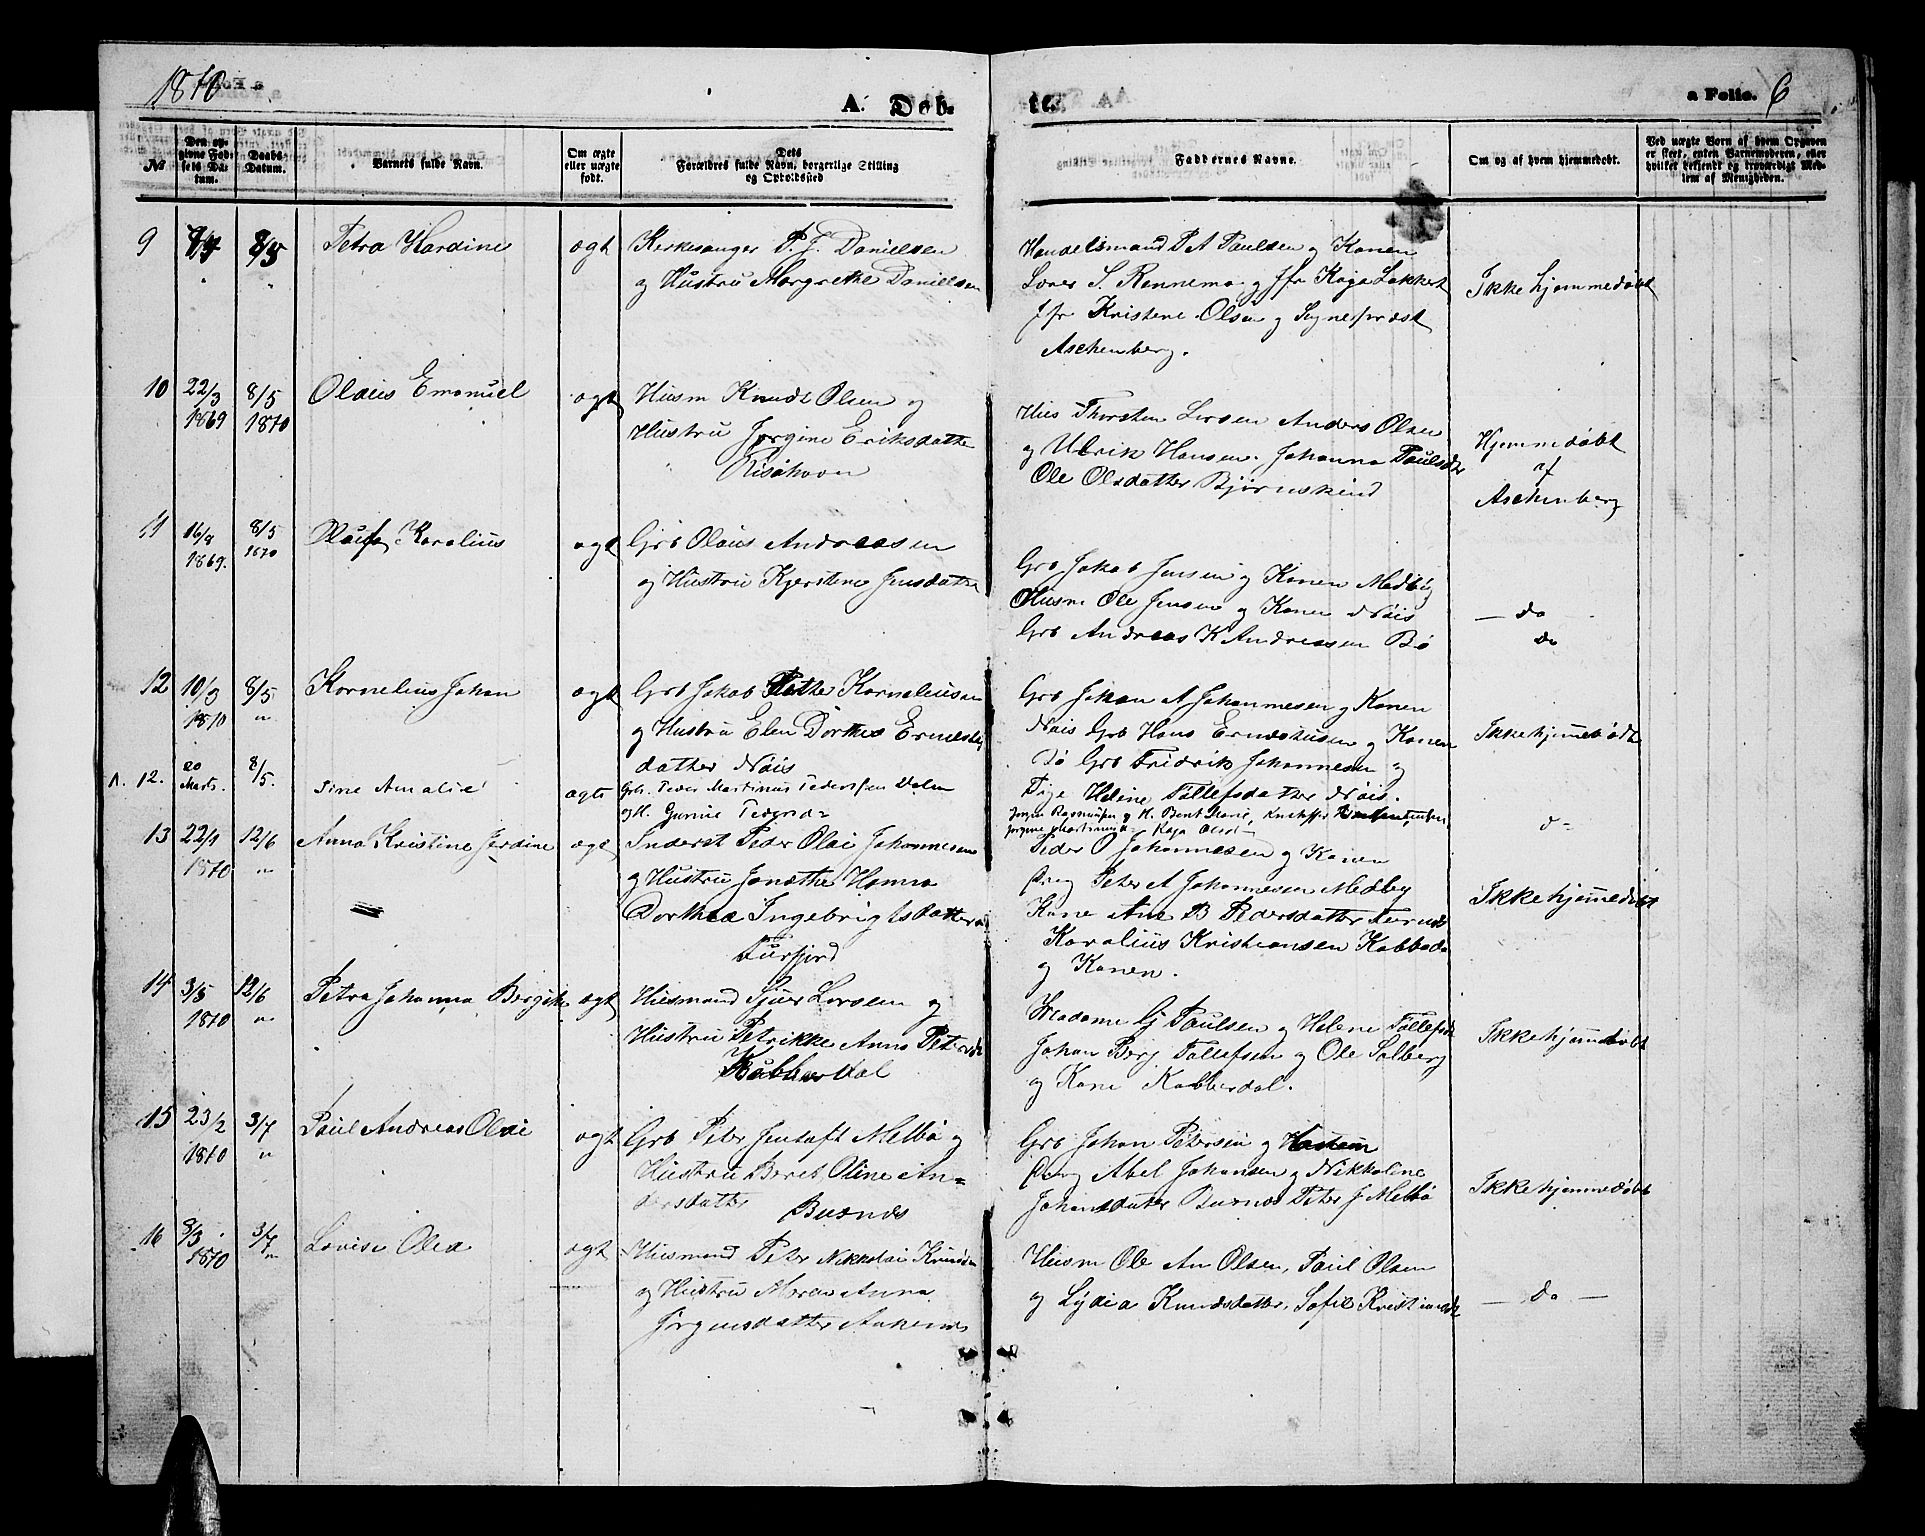 1870
A. Døb-
te.
a Folio. 6
№
Den opgivne Fødsels Datum.
Daabs Datum.
Barnets fulde Navn.
Om ægte eller uægte født.
Dets Forældres fulde Navn, borgerlige Stilling og Opholdssted
Faddernes Navne.
Om og af hvem hjemmedøbt.
Ved uægte Børn af hvem Opgiven er skeet, enten Barnemoderen, eller hvilket bekjendt og troværdigt Medlem af Menigheden.
9
8/5
Petra Hardine
ægt
Kirkesanger P. J. Danielsen
og Hustru Margrethe Danielsen
Handelsmand P A Paulsen og Konen
Lærer S. Rennemo og Jfr Kaja Lokkert
Jfr Kristene Olsen og Sognepræst
Aschenberg.
Ikke hjemmedøbt
10
22/3
1869
8/5
1870
Olaus Emanuel
ægt
Husm Knudt Olsen og
Hustru Jørgine Eriksdatter
Risøhavn
Hus Thorsten Larsen Anders Olsen
og Ulrik Hansen. Johanna Paulsdtr
Ole Olsdatter Bjørnskind
Hjemmedøbt
af
Aschenberg
11
16/8
1869.
8/5
1870
Olaus Karolius
ægt
Grb Olaus Andreasen
og Hustru Kjerstine Jensdatter
Grb Jakob Jensen og Konen Medby
Husm Ole Jensen og Konen Nøis
Grb Andreas K Andreasen Bø
do
do
12
10/3
1870
8/5
"
Kornelius Johan
ægt
Grb Jakob Pether Korneliusen
og Hustru Elen Dorthea Ernests
datter Nøis
Grb Johan A Johannesen og Konen
Nøis Grb Hans Ernesthusen og Konen
do Grb Fridrik Johannesen og
Pige Heline Tollefsdatter Nøis.
Ikke hjemmedøbt
12.
20
Marts.
8/5.
Sine Amalie
ægte
Grb. Peder Martinus Pedersen Dalen
og H. Gurine Pedersd=
Kaja Olsd
13
22/1
1870
12/6
"
Anna Kristine Jordine
ægt
Inderst Peder Olai Johannesen
og Hustru Jonetthe Hanna
Dorthea Ingebrigtsdatter
Tusfjord
Peder O Johannesen og Konen
Ørng Peter A Johannesen Medby
Kone Ane B Pedersdatter
Karolius Kristiansen Kobbedal
og Konen.
Ikke hjemmedøbt
14
3/5
1870
12/6
"
Petra Johanna Bergithe
ægt
Husmand Sjur Larsen og
Hustru Petrikke Anna Petersdtr
Kobberdal
Madame G Paulsen og Helene Tollefsdtr
Johan Berg Tollefsen og Ole Solberg
og Kone Kobberdal.
Ikke hjemmedøbt
15
23/2
1870
3/7
"
Paul Andreas Olai
ægt
Grb Peter Jentoft Melbø og
Hustru Beret Oline An=
dersdatter Buknes
Grb Johan Petersen og Hustru
Ørng Abel Johansen og Nikkoline
Johansdatter Buknes Peter J Melbø
Ikke hjemmedøbt
16
8/3
1870
3/7
"
Lovise Olea
ægt
Husmand Peter Nikkolai Knudsen
og Hustru Maren Anna
Jørgensdatter Aakenes
Husm Ole An Olsen, Paul Olsen
og Lydia Knudsdatter, Sofie Kristiansdtr
— do —